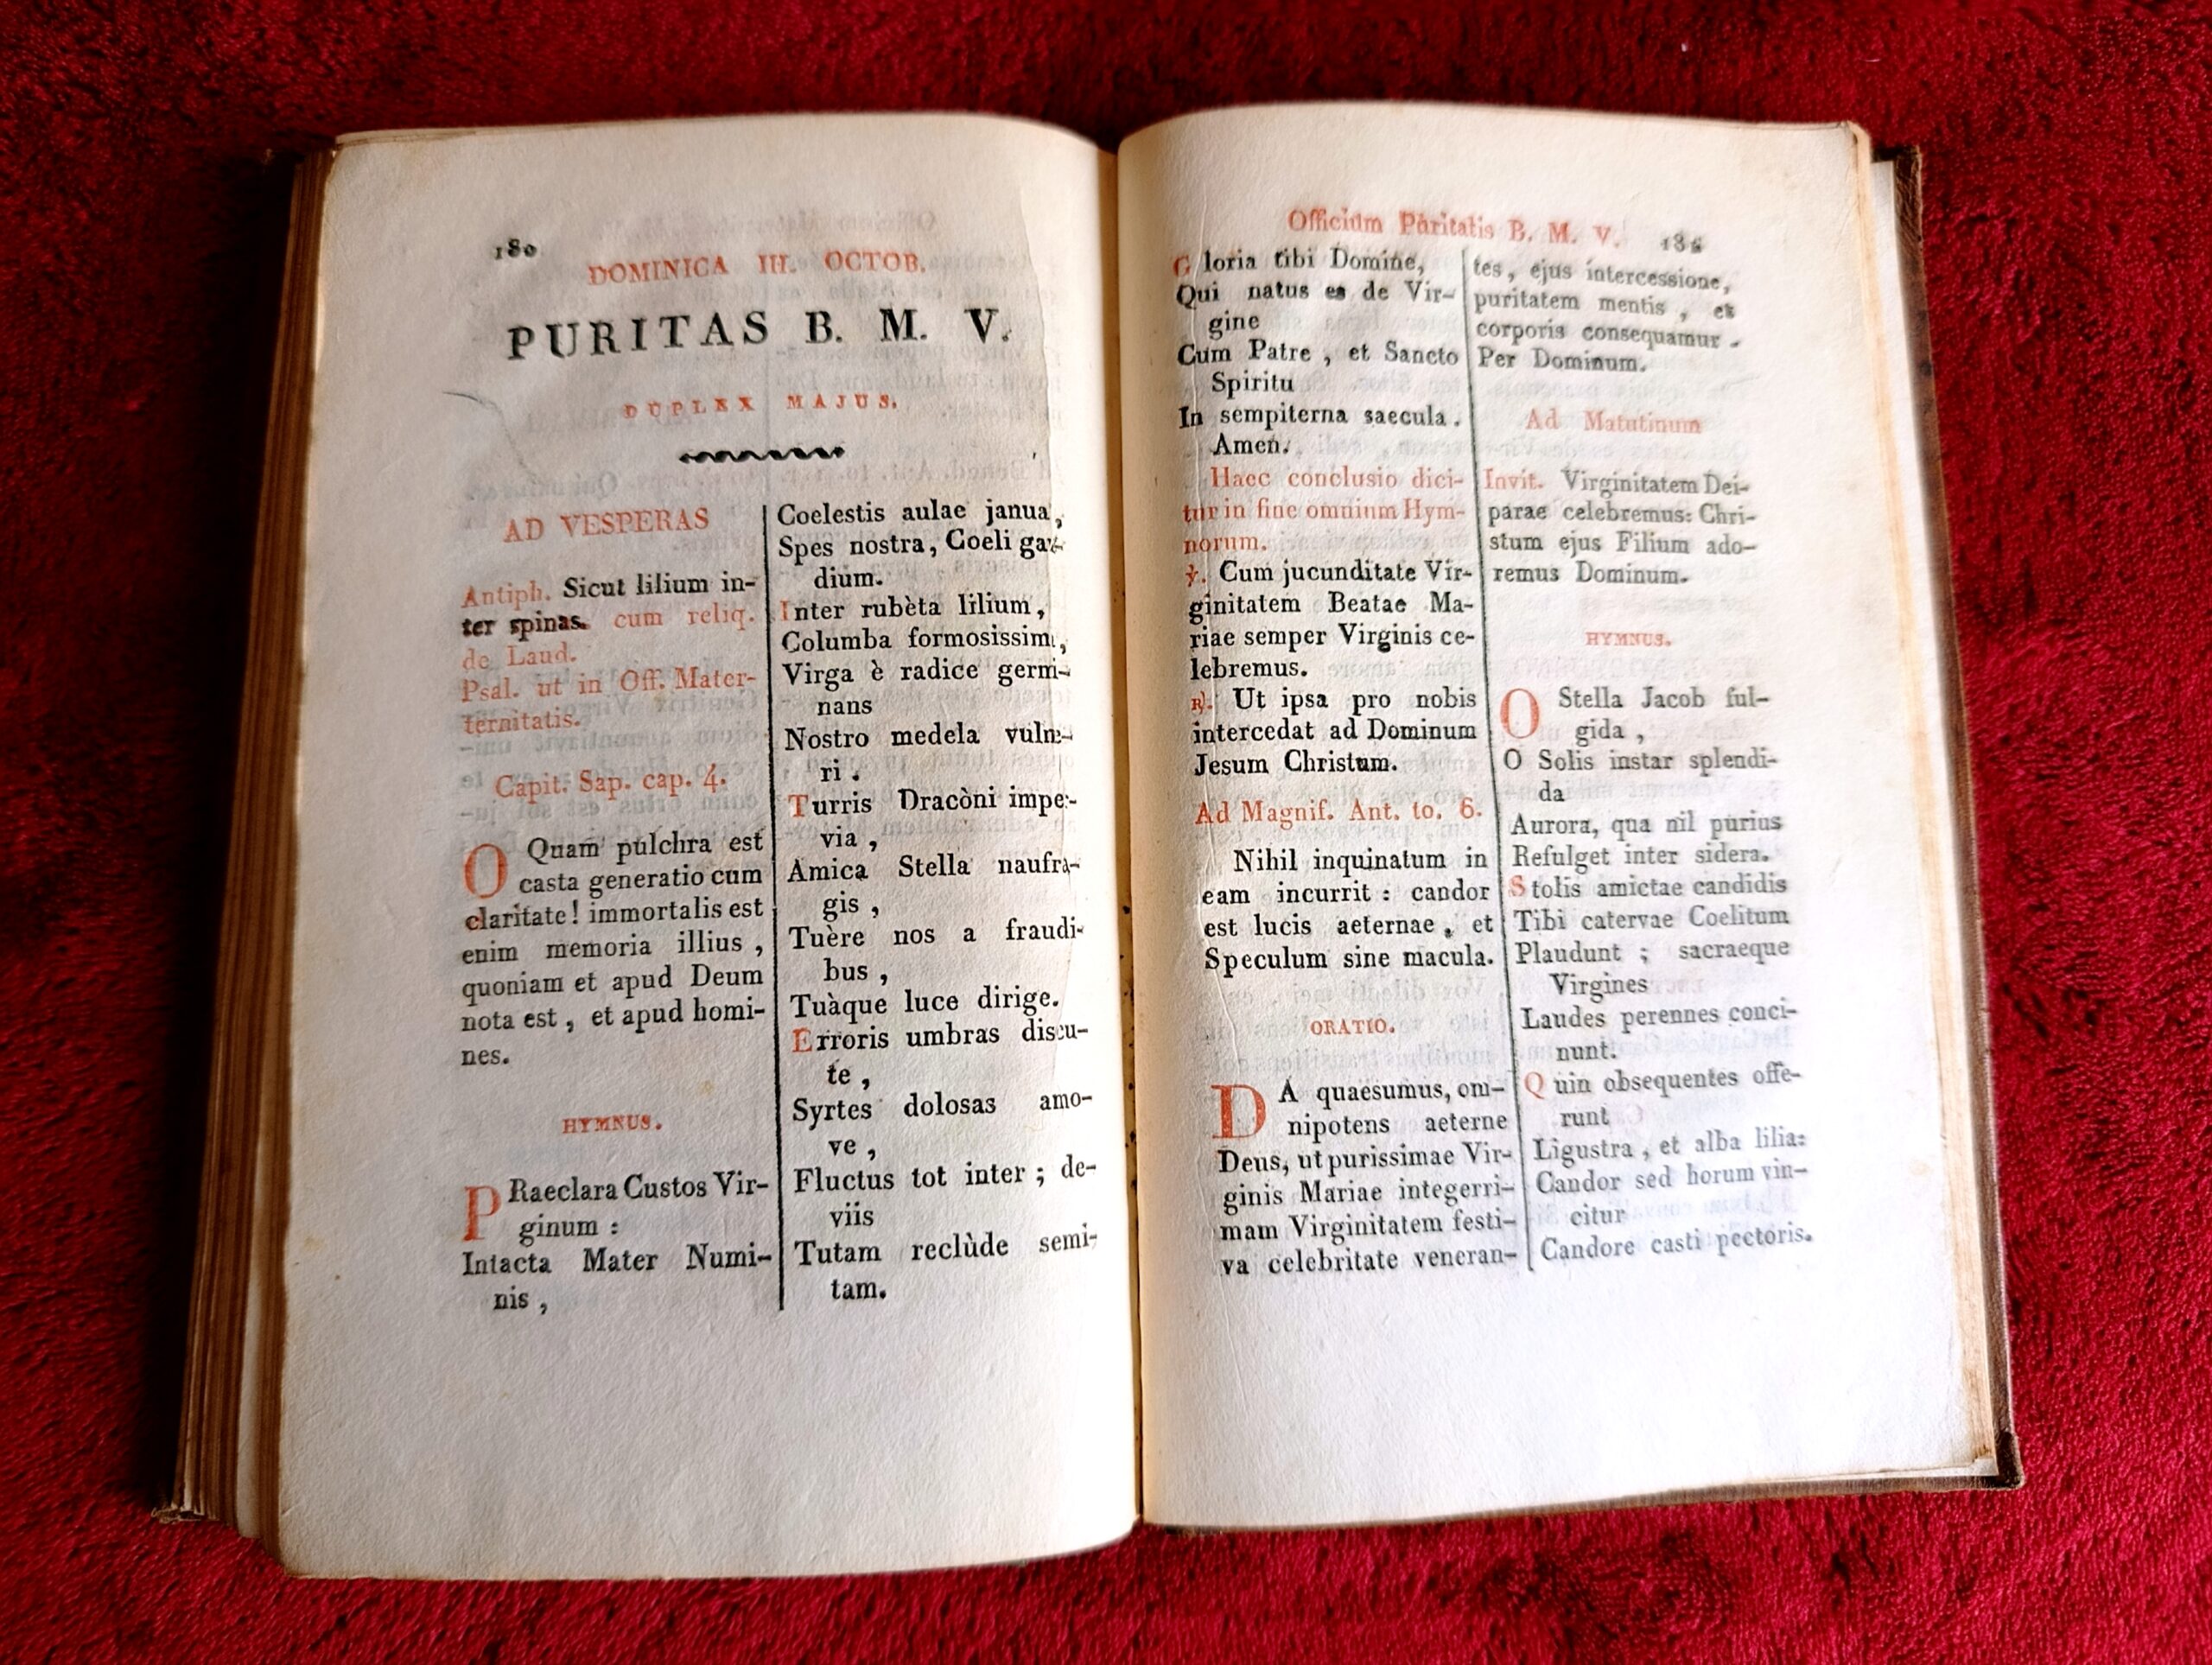 180
DOMINICA III. OCTOB.
PURITAS B. M. V.
DUPLEX MAJUS.
AD VESPERAS
Antiph. Sicut lilium in-
ter spinas. cum reliq.
de Laud.
Psal. ut in Off. Mater-
ternitatis.
Capit. Sap. cap. 4.
O Quam pulchra est
casta generatio cum
claritate! immortalis est
enim memoria illius,
quoniam et apud Deum
nota est, et apud homi-
nes.
HYMNUS.
PRaeclara Custos Vir-
ginum :
Intacta Mater Numi-
nis ,
Coelestis aulae janua,
Spes nostra, Coeli gau-
dium.
Inter rubèta lilium,
Columba formosissima,
Virga è radice germi-
nans
Nostro medela vulne-
ri.
Turris Dracòni imper-
via ,
Amica Stella naufra-
gis ,
Tuère nos a fraudi-
bus ,
Tuàque luce dirige.
Erroris umbras discu-
te ,
Syrtes dolosas amo-
ve ,
Fluctus tot inter ; de-
viis
Tutam reclùde semi-
tam.
Officium Puritatis B. M. V.
Gloria tibi Domine,
Qui natus es de Vir-
gine
Cum Patre , et Sancto
Spiritu
In sempiterna saecula.
Amen.
Haec conclusio dici-
tur in fine omnium Hym-
norum.
℣. Cum jucunditate Vir-
ginitatem Beatae Ma-
riae semper Virginis ce-
lebremus.
℟. Ut ipsa pro nobis
intercedat ad Dominum
Jesum Christum.
Ad Magnif. Ant. to. 6.
Nihil inquinatum in
eam incurrit : candor
est lucis aeternae, et
Speculum sine macula.
ORATIO.
DA quaesumus, om-
nipotens aeterne
Deus, ut purissimae Vir-
ginis Mariae integerri-
mam Virginitatem festi-
va celebritate veneran-
tes, ejus intercessione,
puritatem mentis , et
corporis consequamur.
Per Dominum.
Ad Matutinum
Invit. Virginitatem Dei-
parae celebremus: Chri-
stum ejus Filium ado-
remus Dominum.
HYMNUS.
O Stella Jacob ful-
gida ,
O Solis instar splendi-
da
Aurora, qua nil purius
Refulget inter sidera.
Stolis amictae candidis
Tibi catervae Coelitum
Plaudunt ; sacraeque
Virgines
Laudes perennes conci-
nunt.
Quin obsequentes offe-
runt
Ligustra , et alba lilia:
Candor sed horum vin-
citur
Candore casti pectoris.